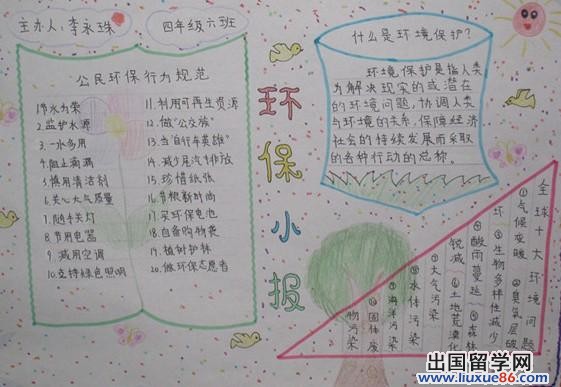 主办人：李永珠
四年级六班
公民环保行为规范
1.节水为荣
2.监护水源
3.一水多用
4.阻止滴漏
5.慎用清洁剂
6.关心大气质量
7.随手关灯
8.节用电器
9.减用空调
10.支持绿色照明
11.利用可再生资源
12.做“公交族”
13.当“自行车英雄”
14.减少尾汽排放
15.珍惜纸张
16.节粮新时尚
17.买环保电池
18.自备购物袋
19.植树护林
20.做环保志愿者
环保小报
什么是环境保护?
环境保护是指人类
为解决现实的或潜在
的环境问题,协调人类
与环境的关系,保障经济
社会的持续发展而采取
的各种行动的总称。
全球十大环境问题
①气候变暖 ②臭氧层破
坏 ③生物多样性减少
④酸雨蔓延 ⑤森林
锐减 ⑥土地荒漠化
⑦大气污染
⑧水体污染
⑨海洋污染
⑩固体废
物污染
出国留学网
www.liuxue86.com